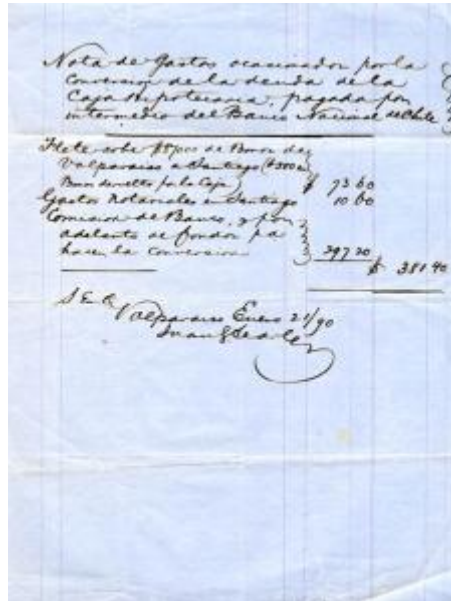 Nota de Gastos ocasionados por la
conversion de la deuda de la
Caja Hipotecaria, pagada por
intermedio del Banco Nacional de Chile
Flete sobre de Bonos de
Valparaiso a Santiago
Bonos devueltos por la Caja $ 73 60
Gastos Notariales en Santiago 10 60
Comision de Banco, y por
adelanto de fondos pa
hacer la conversion 297 20
$ 381 40
S. E. O.
Valparaiso Enero 21/90
Juan